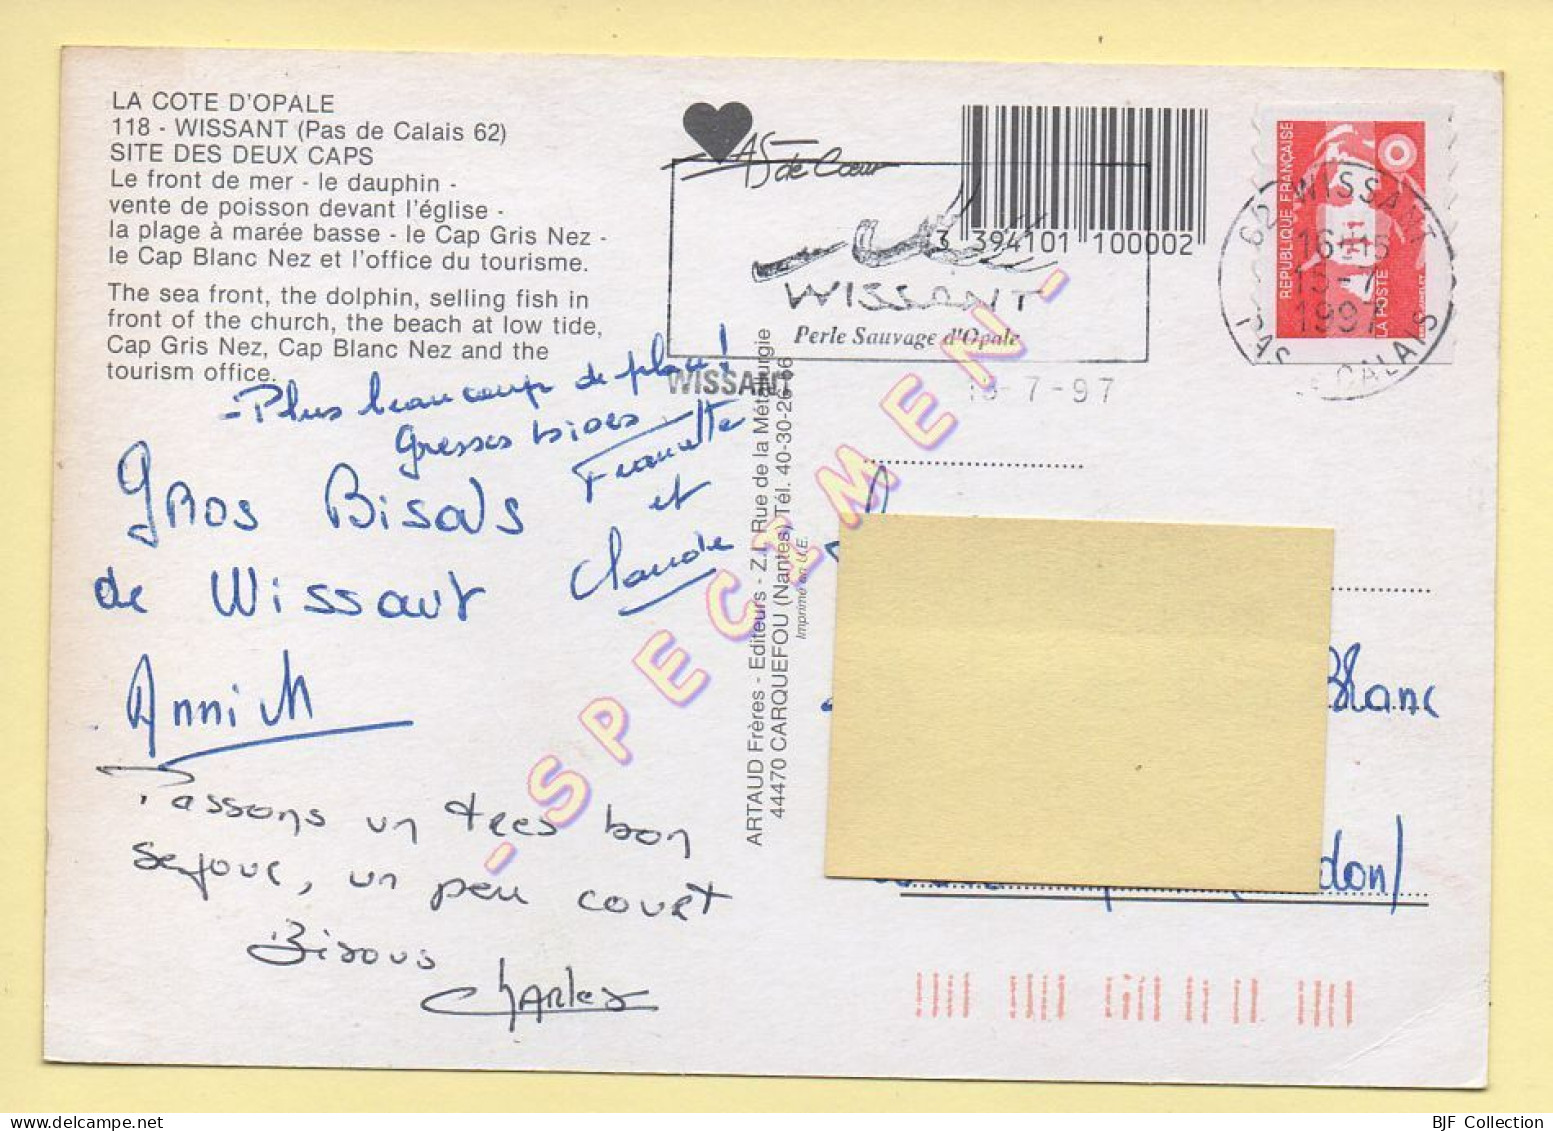 LA COTE D'OPALE
118 - WISSANT (Pas de Calais 62)
SITE DES DEUX CAPS
Le front de mer - le dauphin -
vente de poisson devant l'église -
la plage à marée basse - le Cap Gris Nez -
le Cap Blanc Nez et l'office du tourisme.
The sea front, the dolphin, selling fish in
front of the church, the beach at low tide,
Cap Gris Nez, Cap Blanc Nez and the
tourism office.
- Plus beaucoup de place !
Grosses bises
Francette
et
Claude
Gros Bisous
de Wissant
Annick
Passons un tres bon
sejour, un peu court
Bisous
Charles
AS de Cœur
3 394101 100002
WISSANT
Perle Sauvage d'Opale
WISSANT
-7-97
62 WISSANT
16H15
1997
PAS CALAIS
REPUBLIQUE FRANÇAISE
LA POSTE
ARTAUD Frères - Editeurs - Z.I. Rue de la Métallurgie
44470 CARQUEFOU (Nantes) Tél. 40-30-26-66
Imprimé en U.E.
- SPECIMEN -
Blanc
don)
BJF Collection